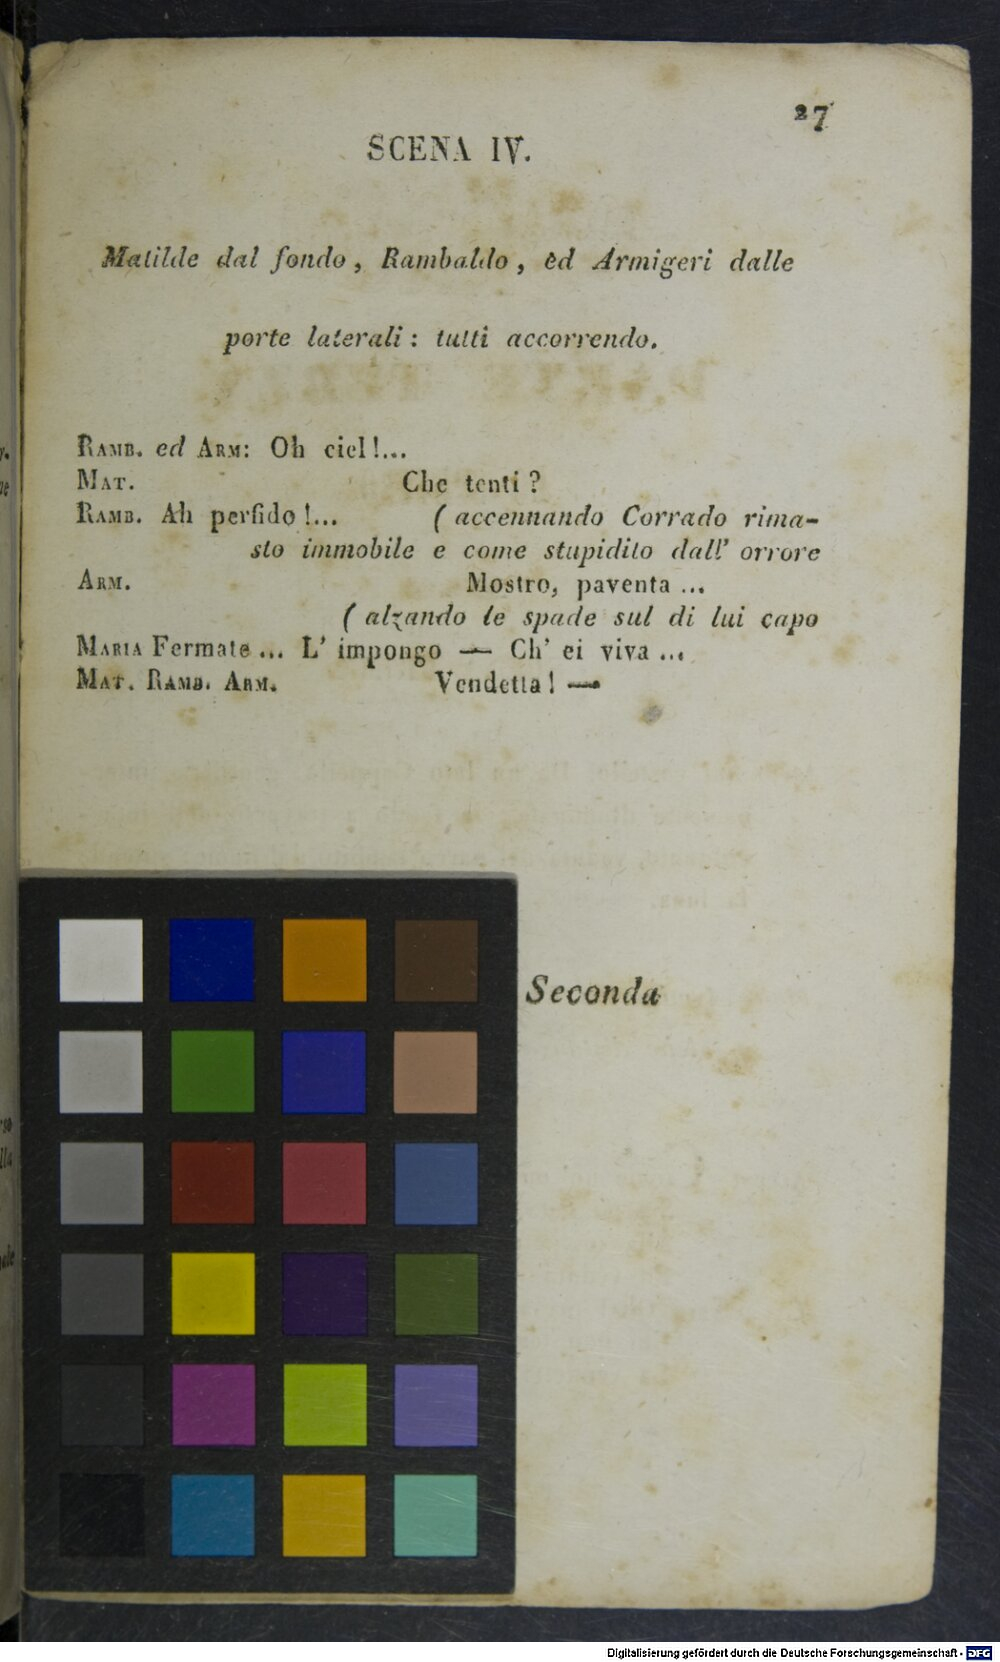 27
SCENA IV.
Matilde dal fondo, Rambaldo, ed Armigeri dalle
porte laterali: tutti accorrendo.
RAMB. ed ARM: Oh ciel!...
MAT. Che tenti?
RAMB. Ah perfido!... (accennando Corrado rima-
sto immobile e come stupidito dall' orrore
ARM. Mostro, paventa ...
(alzando le spade sul di lui capo
MARIA Fermate ... L' impongo — Ch' ei viva ...
MAT. RAMB. ARM. Vendetta! —
Seconda
Digitalisierung gefördert durch die Deutsche Forschungsgemeinschaft - DFG